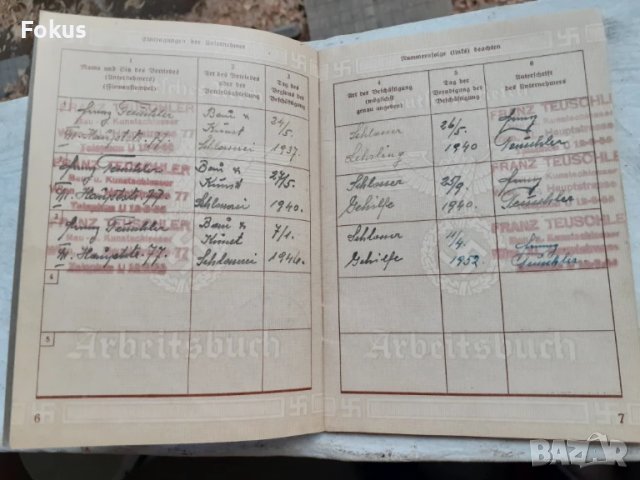 Fokus
Eintragungen der Unternehmer
1
Name und Sitz des Betriebes
(Unternehmers)
(Firmenstempel)
2
Art des Betriebes
oder der
Betriebsabteilung
3
Tag des
Beginns der
Beschäftigung
1
Franz Teuschler
III. Hauptstr. 77.
Bau &
Kunst
Schlosserei
24/5.
1937.
FRANZ TEUSCHLER
Bau- u. Kunstschlosser
2
Franz Teuschler
III. Hauptstr. 77.
Bau &
Kunst
Schlosserei
27/5.
1940.
3
Franz Teuschler
III. Hauptstr. 77.
Bau &
Kunst
Schlosserei
7/1.
1946.
4
5
Arbeitsbuch
6
Nummernfolge (links) beachten
4
Art der Beschäftigung
(möglichst
genau angeben)
5
Tag der
Beendigung der
Beschäftigung
6
Unterschrift
des Unternehmers
Schlosser
Lehrling
26/5.
1940
Franz
Teuschler
FRANZ TEUSCHLER
Bau- u. Kunstschlosser
Hauptstrasse 77
Schlosser
Gehilfe
25/9.
1940.
Franz
Teuschler
FRANZ TEUSCHLER
Schlosser
Gehilfe
11/4.
1952
Franz
Teuschler
Arbeitsbuch
7
BAZAR